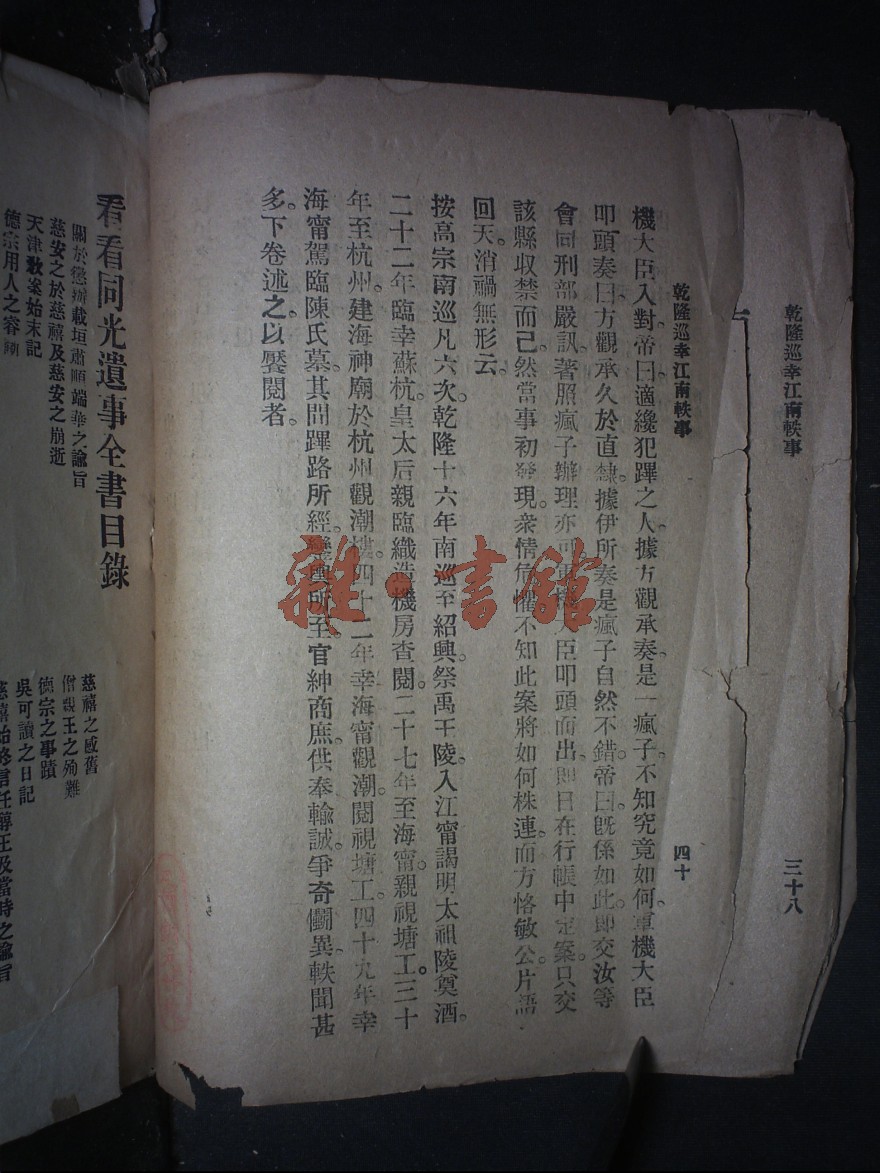 乾隆巡幸江南軼事
三十八
乾隆巡幸江南軼事
四十
機大臣入對。帝曰適纔犯蹕之人。據方觀承奏。是一瘋子。不知究竟如何。軍機大臣
叩頭奏曰。方觀承久於直隸。據伊所奏是瘋子自然不錯。帝曰。旣係如此。即交汝等
會同刑部嚴訊。著照瘋子辦理亦可。軍機大臣叩頭而出。即日在行帳中定案。只交
該縣收禁而已。然當事初發現。衆情危懼。不知此案將如何株連。而方恪敏公。片語
回天。消禍無形云。
按高宗南巡凡六次。乾隆十六年南巡至紹興。祭禹王陵。入江甯謁明太祖陵奠酒。
二十二年臨幸蘇杭。皇太后親臨織造機房查閱。二十七年至海甯。親視塘工。三十
年至杭州。建海神廟於杭州觀潮樓。四十二年幸海甯觀潮。閱視塘工。四十九年幸
海甯。駕臨陳氏墓。其間蹕路所經。鑾輿所至。官紳商庶。供奉輸誠。爭奇鬭異。軼聞甚
多。下卷述之。以饜閱者。
雜·書館
看看同光遺事全書目錄
關於懲辦載垣肅順端華之諭旨
慈安之於慈禧及慈安之崩逝
天津敎案始末記
德宗用人之容
慈禧之感舊
僧親王之殉難
德宗之事蹟
吳可讀之日記
慈禧始終信任醇王及當時之諭旨